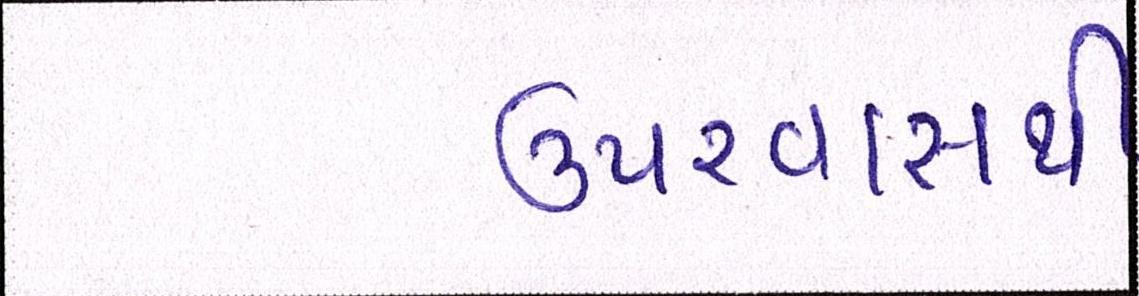 ઉપરવાસથી